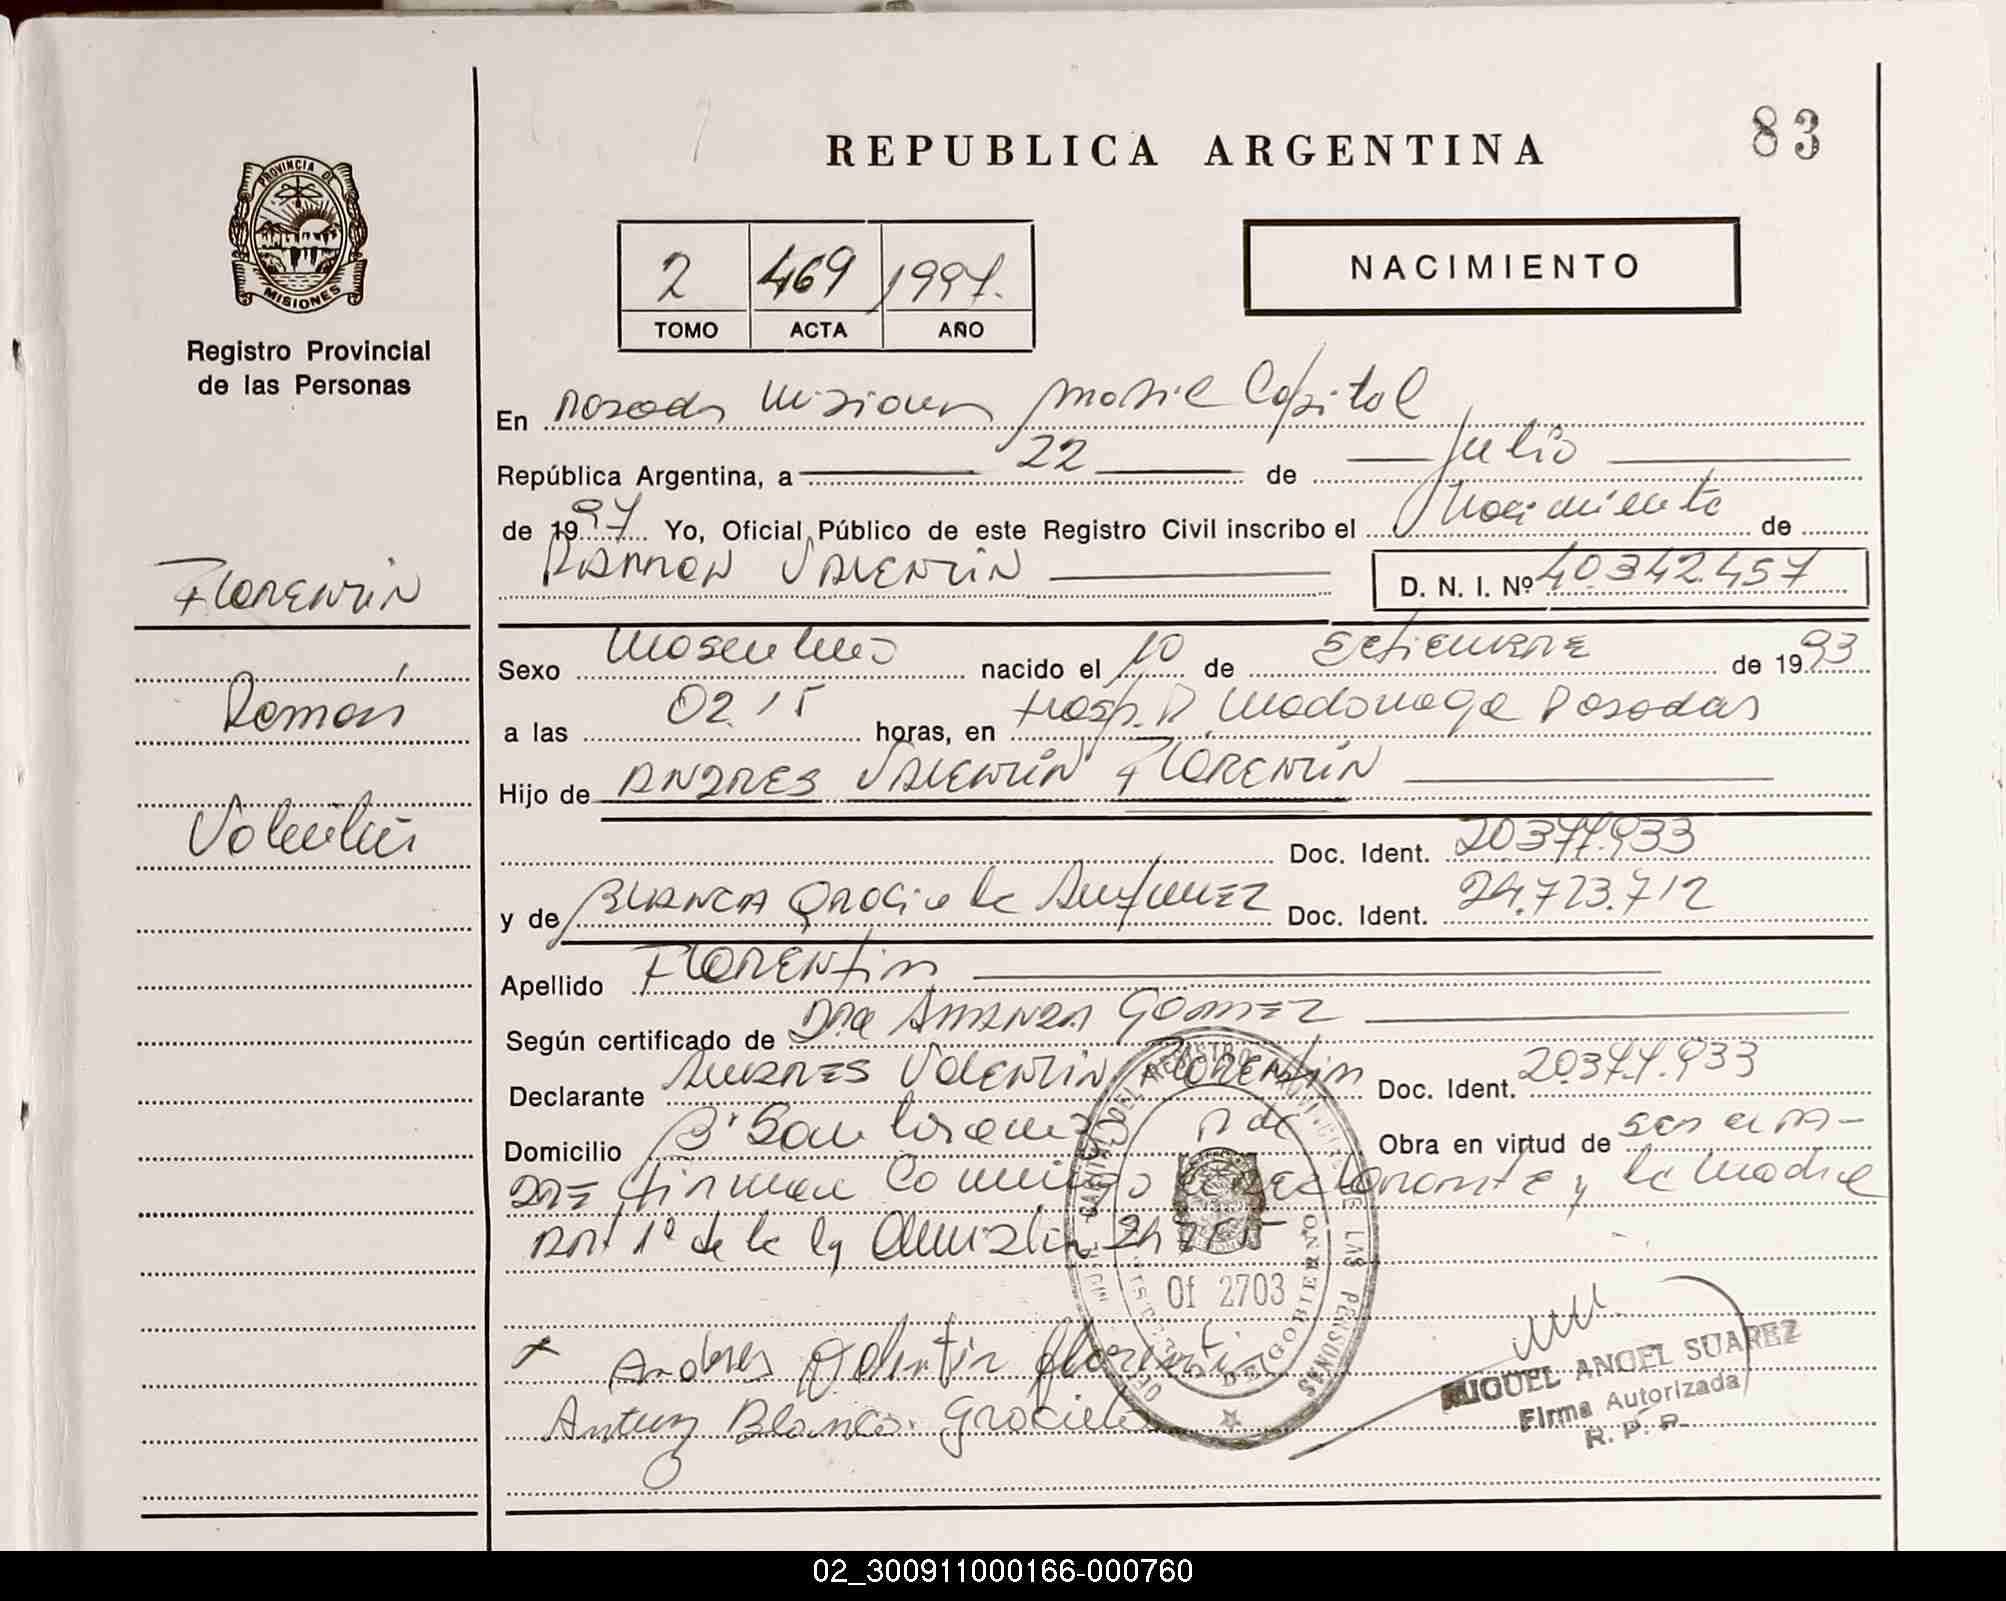 REPUBLICA ARGENTINA
83
PROVINCIA DE
MISIONES
Registro Provincial
de las Personas
2 469 1997.
TOMO ACTA AÑO
NACIMIENTO
En Posadas Misiones Capital
República Argentina, a 22 de Julio
de 1997 Yo, Oficial Público de este Registro Civil inscribo el Nacimiento de
RAMON VALENTIN D. N. I. Nº 40342.457
Florentin
Ramón
Valentín
Sexo Masculino nacido el 10 de Setiembre de 1993
a las 02.15 horas, en Hosp. R Madariaga Posadas
Hijo de ANDRES VALENTIN FLORENTIN
Doc. Ident. 20.377.933
y de BLANCA Graciela Antunez Doc. Ident. 24.723.712
Apellido FLORENTIN
Según certificado de Dra AMANDA GOMEZ
Declarante ANDRES VALENTIN FLORENTIN Doc. Ident. 20.377.933
Domicilio B° San Lorenzo Obra en virtud de ser el PA-
DRE firman conmigo declarante y la madre
Art 1° de la ley Amnistía
Of 2703
Andres Valentin florentin
Blanca Graciela
MIGUEL ANGEL SUAREZ
Firma Autorizada
R. P. P.
02_300911000166-000760